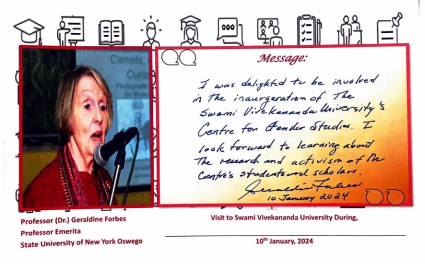 Message:
I was delighted to be involved
in the inauguration of The
Swami Vivekananda University's
Centre for Gender Studies. I
look forward to learning about
The research and activism of the
Centre's students and scholars.
Geraldine Forbes
10 January 2024
Professor (Dr.) Geraldine Forbes
Professor Emerita
State University of New York Oswego
Visit to Swami Vivekananda University During,
10th January, 2024